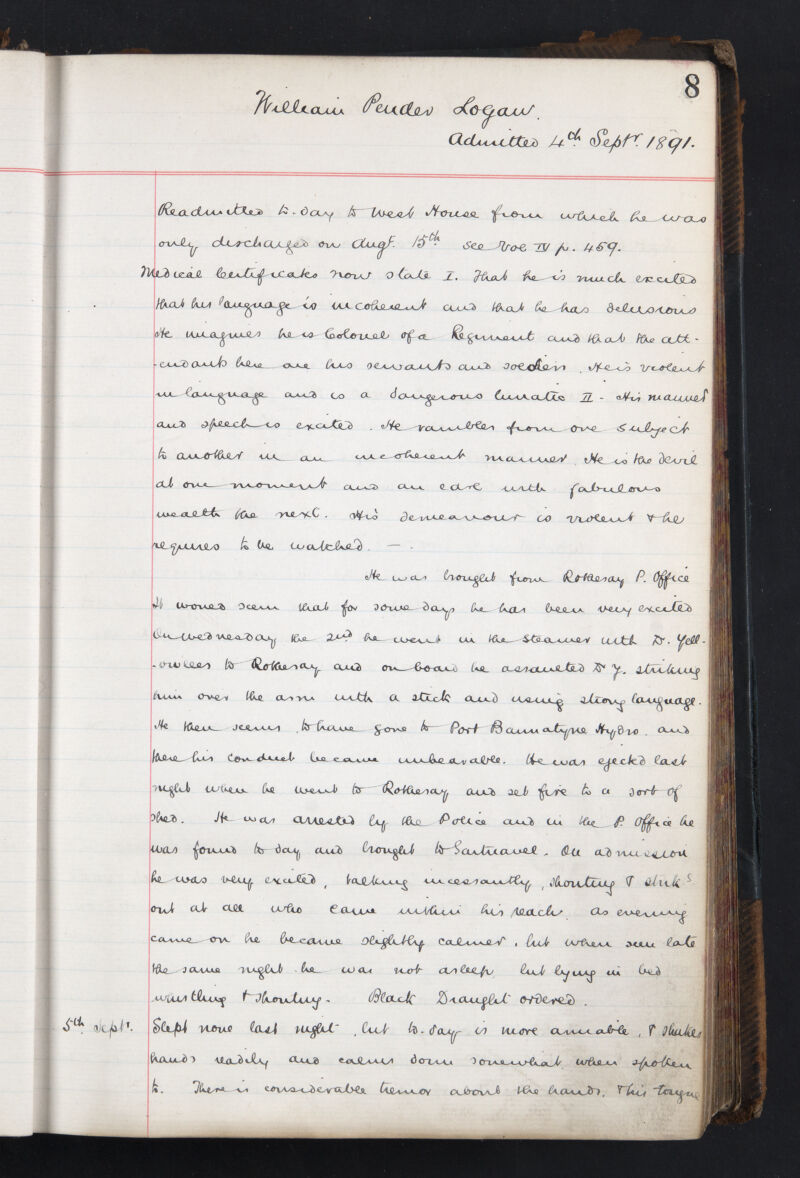 8
William Pender Logan.
Admitted 4th Septr. 1891.
Readmitted to-day to West House from which he was
only discharged on Augt. 15th see Vol IV p. 459.
Medical Certificates now state I. That he is much excited
that his language is incoherent and that he has delusions
He imagines he is Colonel of a Regiment and that the att-
-endants here are his servants and soldiers. He is violent
in language and is a dangerous lunatic II - His manner
and speech is excited. He rambles from one subject
to another in an incoherent manner. He is the devil
at one moment and an earl with fabulous
wealth the next. His demeanour is violent & he
requires to be watched. — .
He was brought from Rothesay P. Office
It would seem that for some days he has been very excited
On Wednesday the 2nd he went in the steamer with Dr. Yell-
-owlees to Rothesay and on board he assaulted Dr Y. striking
him over the arm with a stick and using strong language.
He then seems to have gone to Port Bannatyne Hydro. and
there his conduct became unbearable. He was ejected last
night when he went to Rothesay and set fire to a sort of
shed. He was arrested by the Police and in the P. Office he
was found to day and brought to Gartnavel. On admission
he was very excited, talking incessantly, shouting & striks
out at all who came within his reach. as evening
came on he became slightly calmer, but when seen late
the same night he was not asleep, but lying in bed
whistling & shouting. Black Draught ordered.
5th Septr. Slept none last night, but to-day is more amiable, & shakes
hands readily and calms down somewhat when spoken
to. There is considerable tremor about the hands, & his tongue